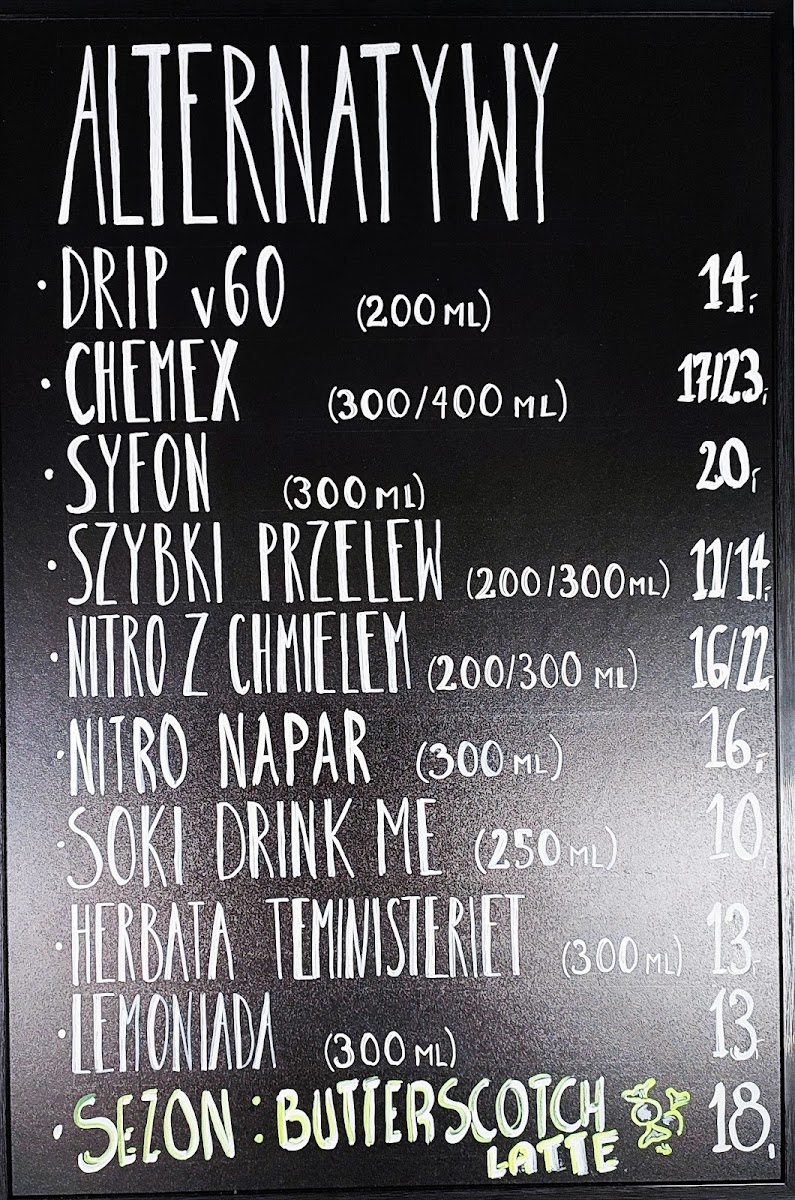 ALTERNATYWY
· DRIP v60 (200 ML) 14,-
· CHEMEX (300/400 ML) 17/23,-
· SYFON (300 ML) 20,-
· SZYBKI PRZELEW (200/300 ML) 11/14,-
· NITRO Z CHMIELEM (200/300 ML) 16/22,-
· NITRO NAPAR (300 ML) 16,-
· SOKI DRINK ME (250 ML) 10,
· HERBATA TEMINISTERIET (300 ML) 13,-
· LEMONIADA (300 ML) 13,-
· SEZON : BUTTERSCOTCH 18,
LATTE